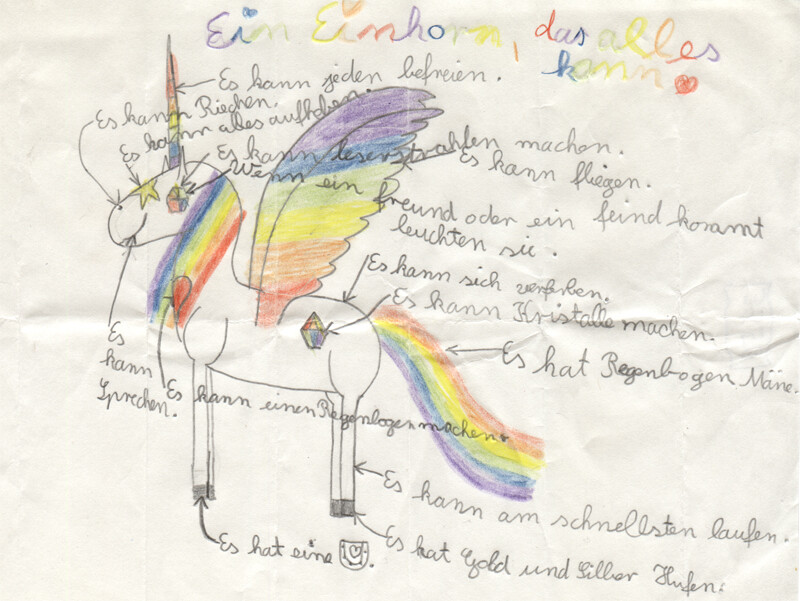 Ein Einhorn, das alles
kann.
Es kann jeden befreien.
Es kann Riechen.
Es kann alles aufheben.
Es kann leserstrahlen machen.
Es kann fliegen.
Wenn ein freund oder ein feind kommt
leuchten sie.
Es kann sich verferben.
Es kann Kristalle machen.
Es hat Regenbogen Mäne.
Es
kann
Sprechen.
Es kann einen Regenbogen machen.
Es kann am schnellsten laufen.
Es hat eine
Es hat Gold und Silber Hufen.